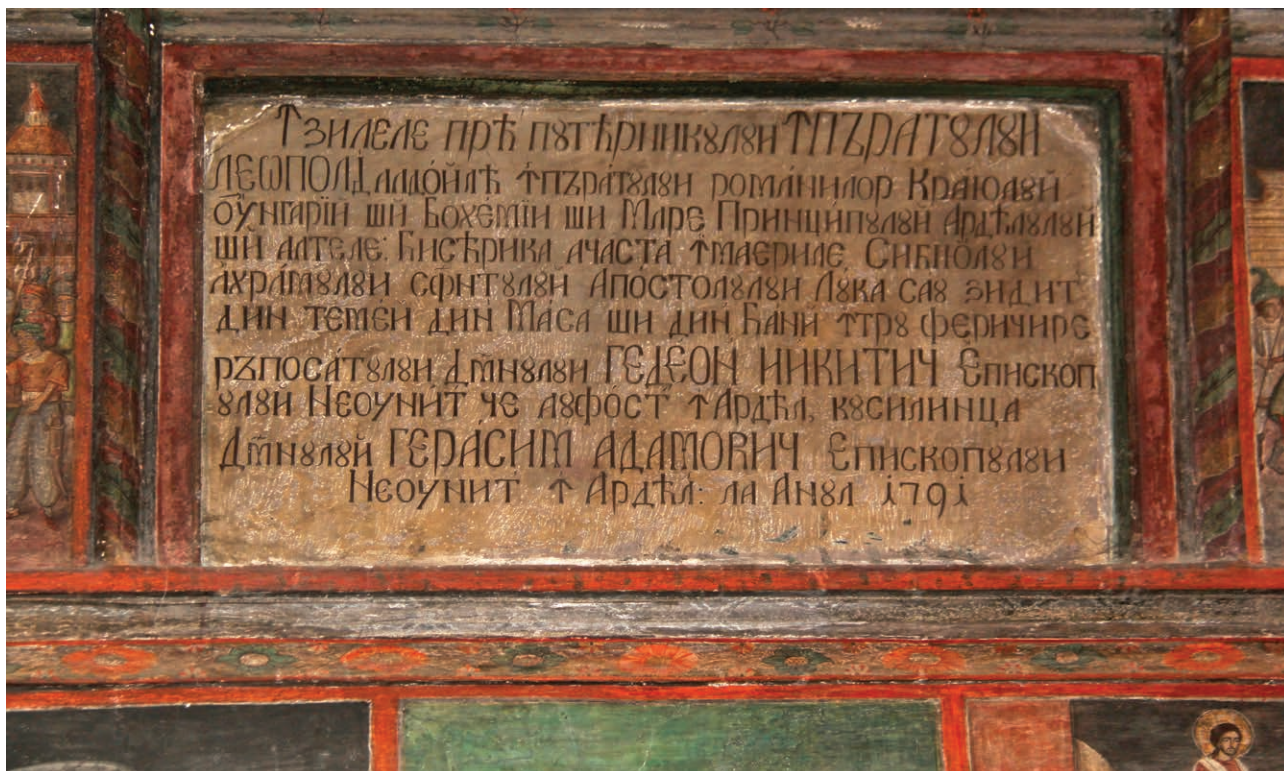 Ꙟ зилеле прѣ пꙋтѣрникꙋлꙋи Ꙟпъратꙋлꙋи
Леѡполд алдо́йлѣ ꙟпъратꙋлꙋи рома́нилор Кра́юлꙋй
Оу҆нгарїй шй Бохемїи ши Маре Принци́пꙋлꙋи Ардѣлꙋлꙋи
шй алтеле: Бисѣрика ачаста ꙟмаериле, Сибїюлꙋи
ахра́мꙋлꙋи сфи́нтꙋлꙋи Апо́столꙋлꙋи Лꙋка саꙋ зидит:
дин темеи дин Ма́са ши дин Бани ꙟтрꙋ феричире
ръпоса́тꙋлꙋи Дм҃нꙋлꙋи ГЕДЕОН НИКИТИЧ Епископ
ꙋлꙋи Неоунит че лꙋфо́ст ꙟАрдѣл, кꙋсилинца
Дм҃нꙋлꙋй ГЕРАСИМ АДАМОВИЧ Епископꙋлꙋи
Неоунит ꙟ Ардѣл: ла Анꙋл 1791